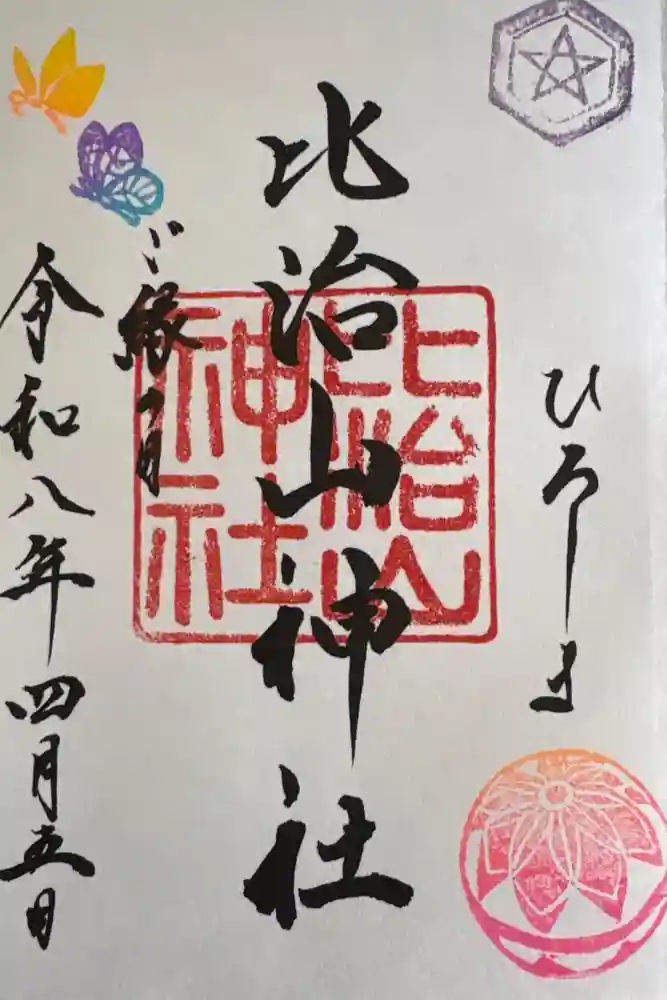 ひろしま
比治山神社
比治山
神社
ご縁つ月
令和八年四月五日